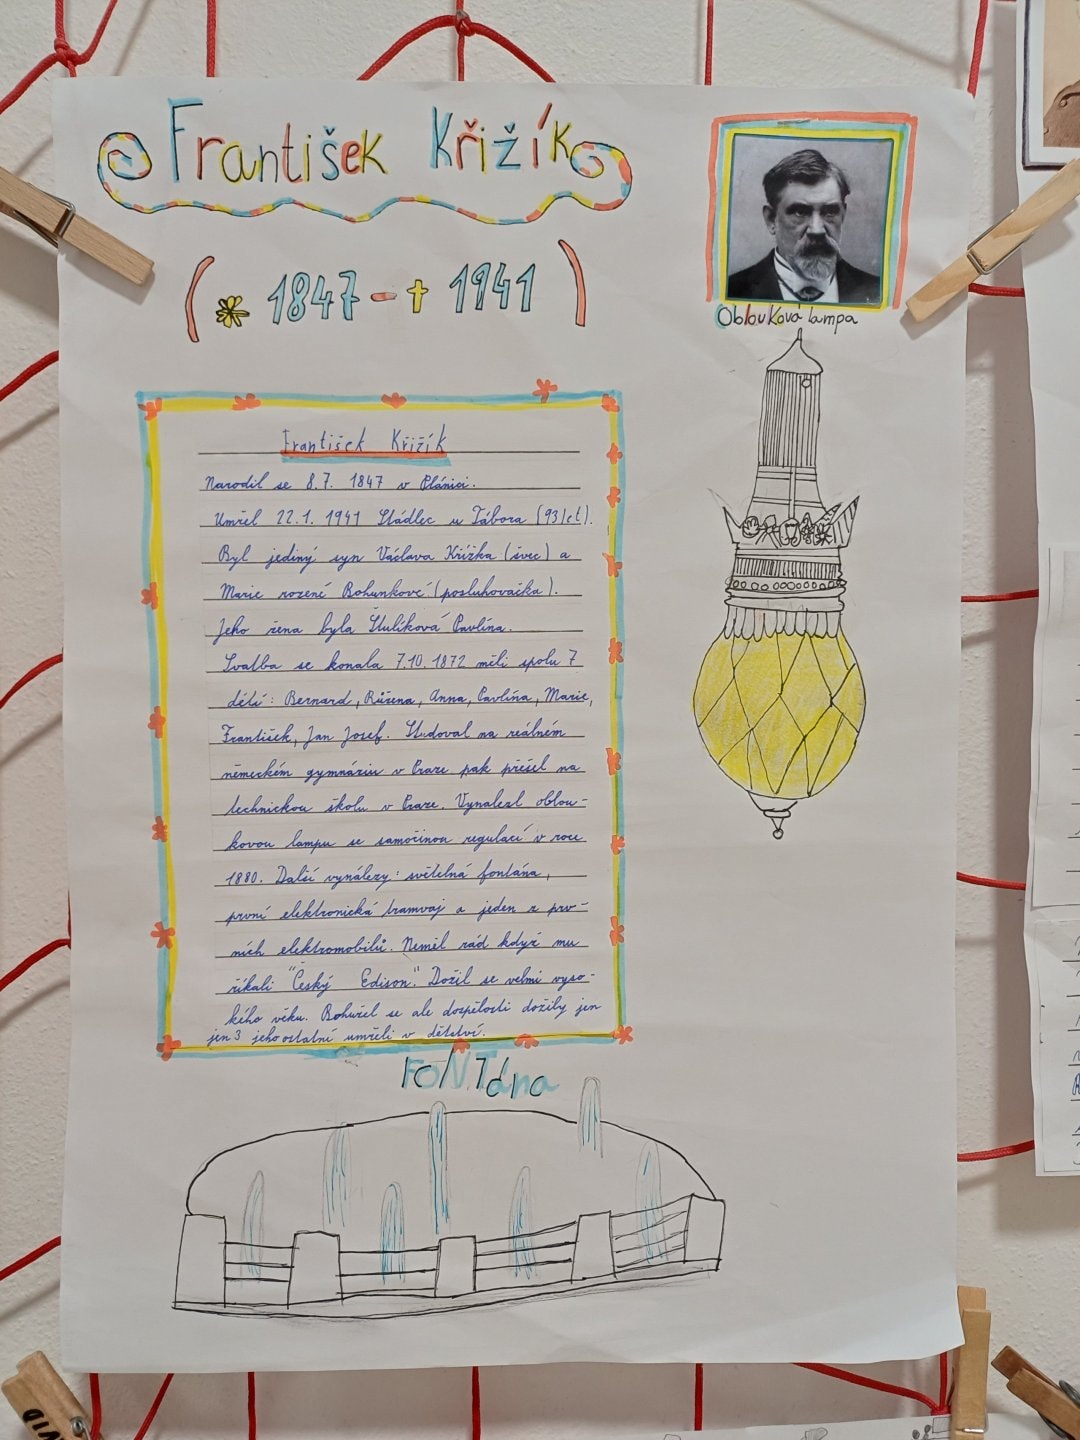 František Křižík
(* 1847 - † 1941)
Oblouková lampa
František Křižík
Narodil se 8.7. 1847 v Plánici.
Umřel 22.1. 1941 Stádlec u Tábora (93let).
Byl jediný syn Václava Křížka (švec) a
Marie rozené Bohunkové (posluhovačka).
Jeho žena byla Štulíková Pavlína.
Svatba se konala 7.10. 1872 měli spolu 7
dětí: Bernard, Růžena, Anna, Pavlína, Marie,
František, Jan Josef. Studoval na reálném
německém gymnáziu v Praze pak přešel na
technickou školu v Praze. Vynalezl oblou-
kovou lampu se samočinou regulací v roce
1880. Další vynálezy: světelná fontána,
první elektronická tramvaj a jeden z prv-
ních elektromobilů. Neměl rád když mu
říkali "Český Edison". Dožil se velmi vyso-
kého věku. Bohužel se ale dospělosti dožily jen
jen 3 jeho ostatní umřeli v dětství.
FONTána